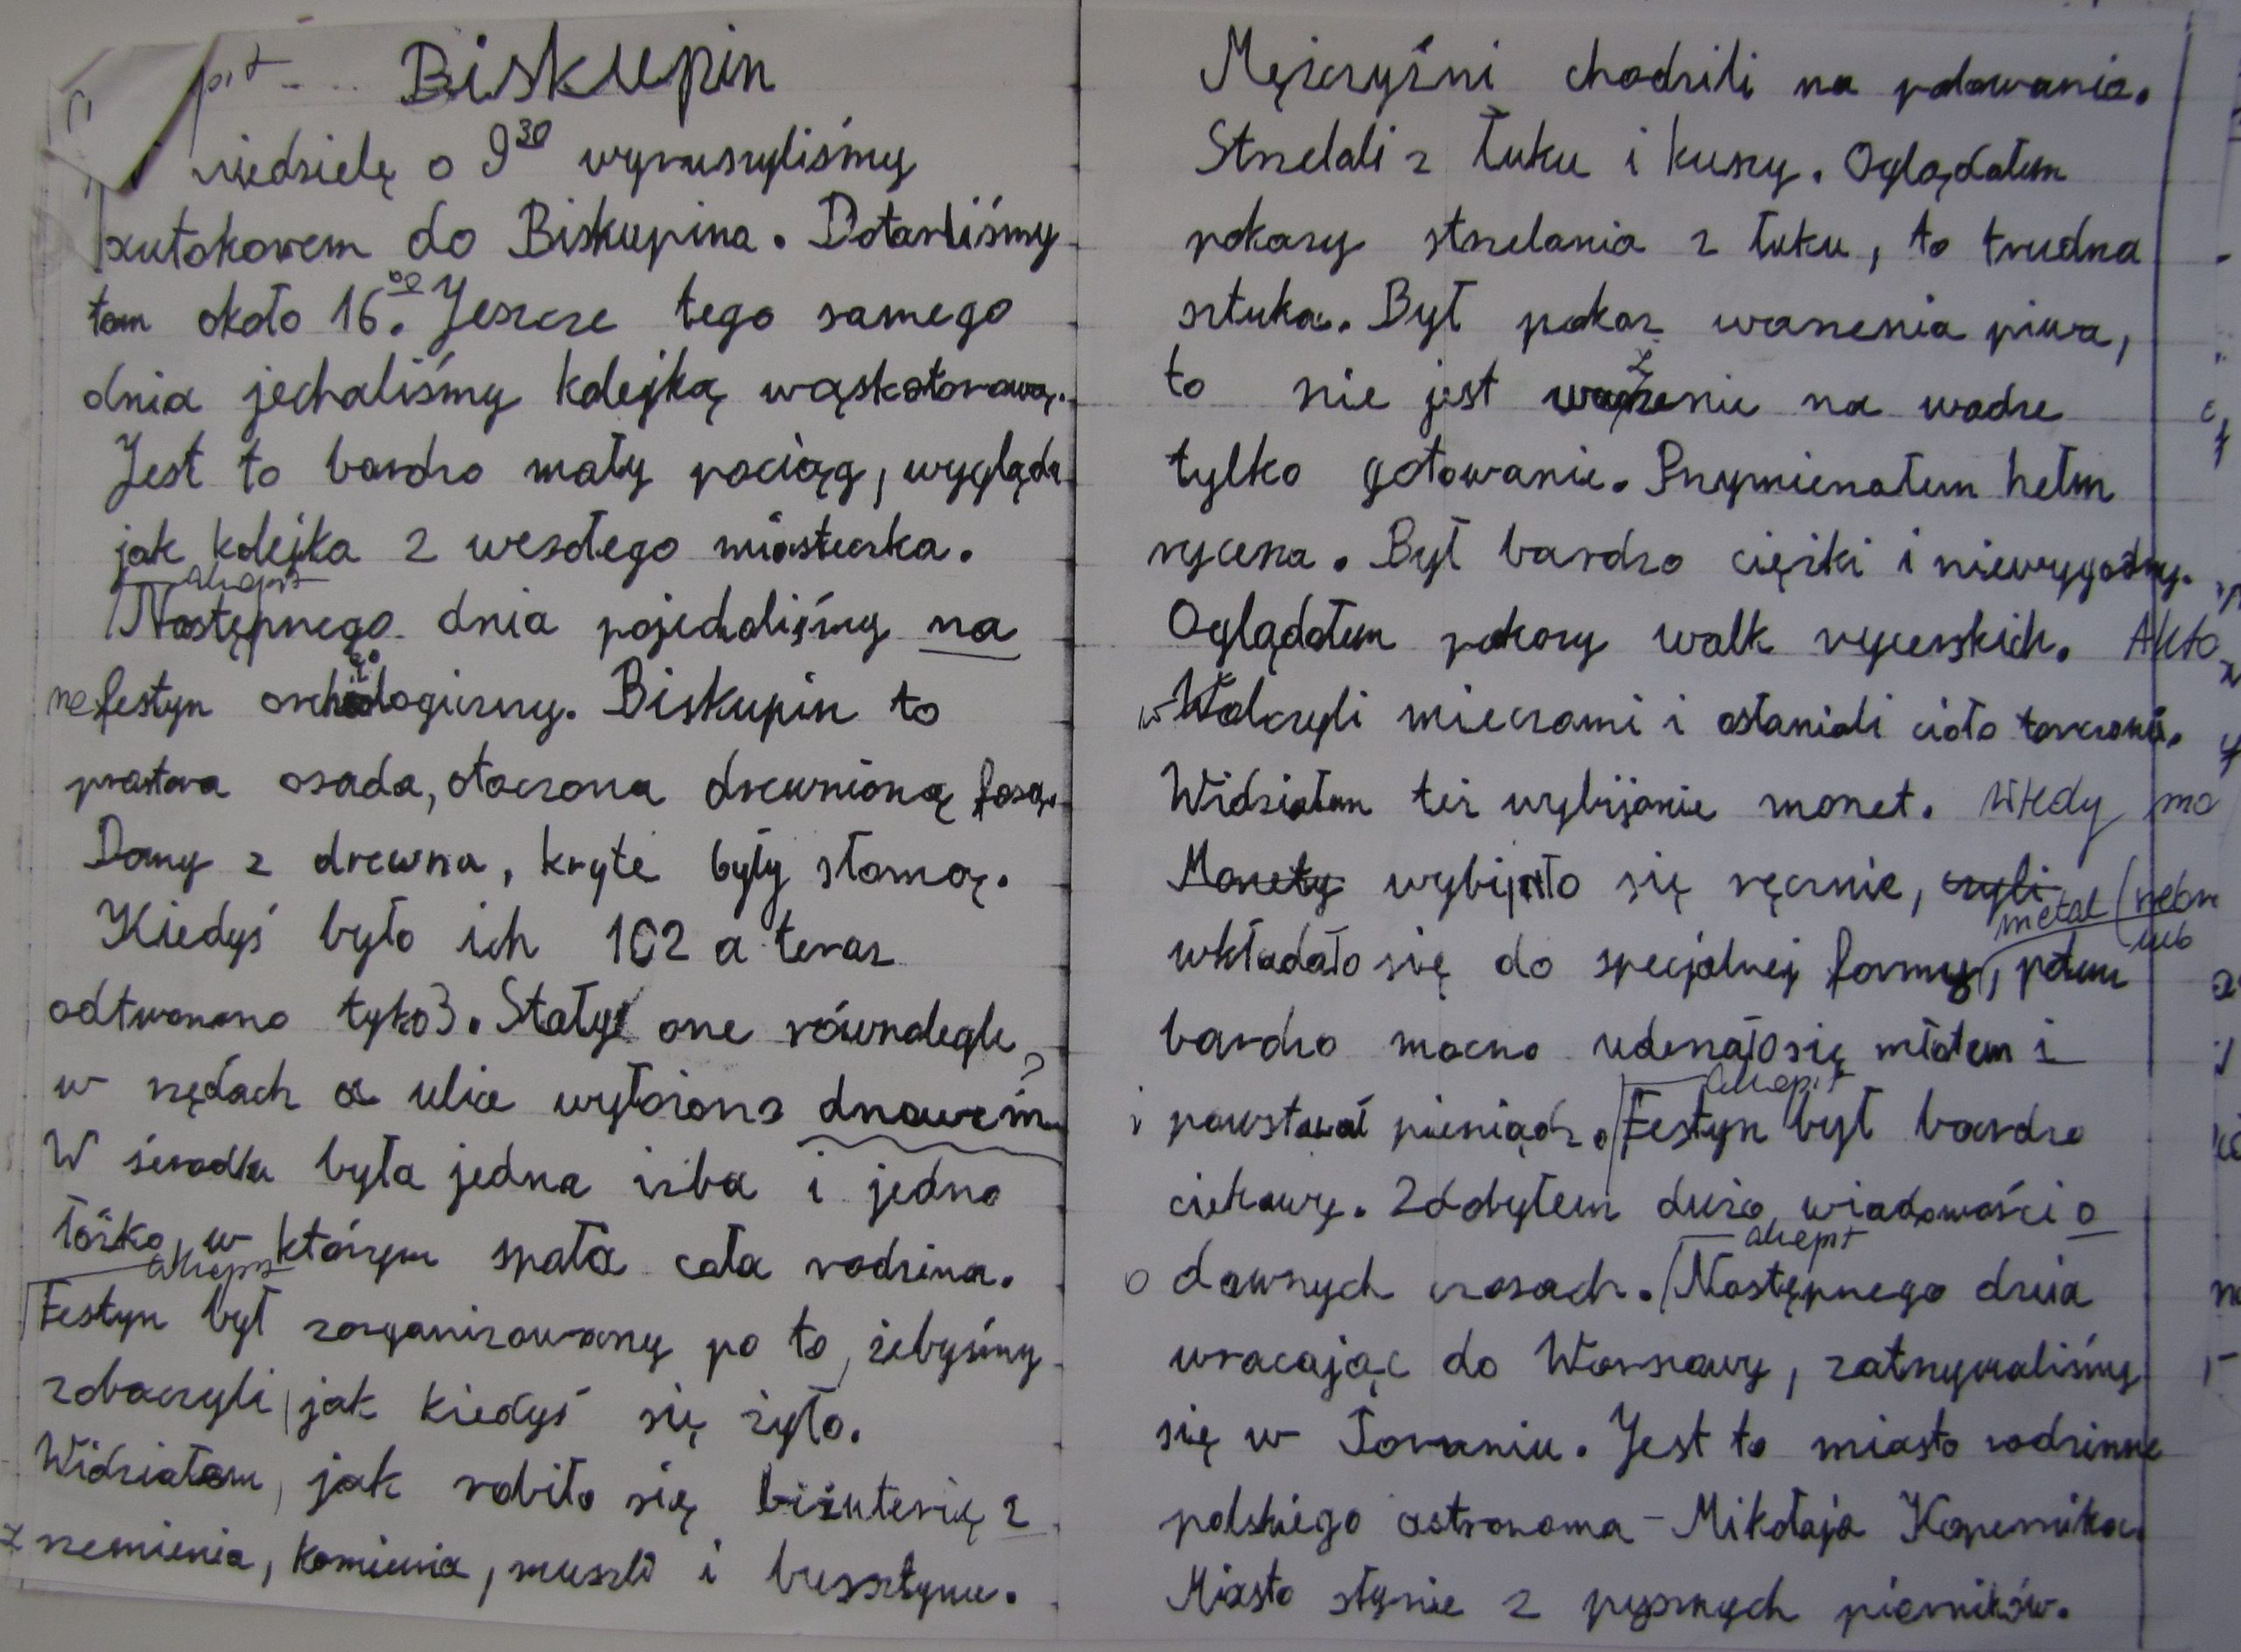 Biskupin
niedzielę o 9³⁰ wyruszyliśmy
autokarem do Biskupina. Dotarliśmy
tam około 16.⁰⁰ Jeszcze tego samego
dnia jechaliśmy kolejką wąskotorową.
Jest to bardzo mały pociąg, wygląda
jak kolejka z wesołego miasteczka.
akapit
Następnego dnia pojechaliśmy na
na festyn archeologiczny. Biskupin to
prastara osada, otoczona drewnianą fosą.
Domy z drewna, kryte były słomą.
Kiedyś było ich 102 a teraz
odtworzono tyko 3. Stały one równolegle
w rzędach a ulice wyłożono drzewem
W środku była jedna izba i jedno
łóżko, w którym spała cała rodzina.
akapit
Festyn był zorganizowany po to, żebyśmy
zobaczyli, jak kiedyś się żyło.
Widziałem, jak robiło się biżuterię z
z rzemienia, kamienia, muszli i bursztynu.
Mężczyźni chodzili na polowania.
Strzelali z łuku i kuszy. Oglądałem
pokazy strzelania z łuku, to trudna
sztuka. Był pokaz warzenia piwa,
to nie jest ważenie na wadze
tylko gotowanie. Przymierzałem hełm
rycerza. Był bardzo ciężki i niewygodny.
Oglądałem pokazy walk rycerskich.
Walczyli mieczami i osłaniali ciało tarczami.
Widziałem też wybijanie monet. Wtedy mo
Monety wybijało się ręcznie, czyli
metal
wkładało się do specjalnej formy, potem
lub
bardzo mocno uderzało się młotem i
akapit
i powstawał pieniądz. Festyn był bardzo
ciekawy. Zdobyłem dużo wiadomości o
akapit
o dawnych czasach. Następnego dnia
wracając do Warszawy, zatrzymaliśmy
się w Toruniu. Jest to miasto rodzinne
polskiego astronoma - Mikołaja Kopernika.
Miasto słynie z pysznych pierników.